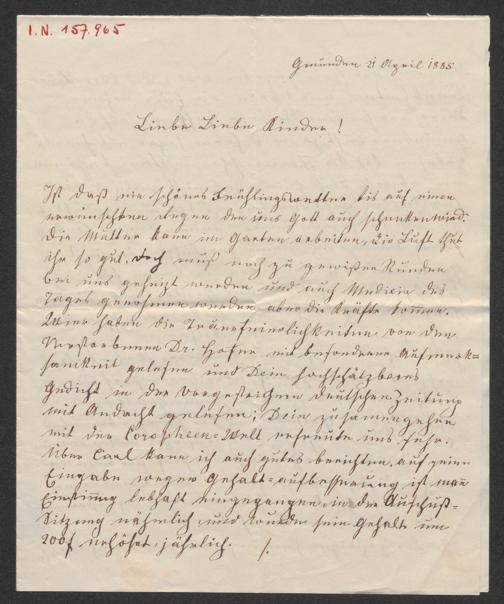 I.N. 157.965
Gmunden 21 April 1885
Liebe Liebe Kinder!
Ist daß ein schönes Frühlingswetter bis auf einen
erwünschten Regen den uns Gott auch schenken wird.
Die Mutter kann im Garten arbeiten, die Luft thut
ihr so gut, doch muß noch zu gewißen Stunden
bei uns geheizt werden und auch Medicin des
Tages genohmen werden aber die Kräfte kommen.
Wier haben die Trauerfeierlichkeiten von den
Verstorbenen Dr. Hofer mit besonderer Aufmerk=
samkeit gelesen und Dein hochschätzbares
Gedicht in der vorgestrichen Deutschen Zeitung
mit Andacht gelesen; Dein zusamengehen
mit der Coropheen=Welt erfreute uns sehr.
Über Carl kann ich auch gutes berichten, auf seine
Eingabe wegen Gehalt=aufbesserung ist man
Einstimig lebhaft eingegangen, in der Auschuß=
Sitzung nähmlich, und wurde sein Gehalt um
200f erhöhet jährlich. /.